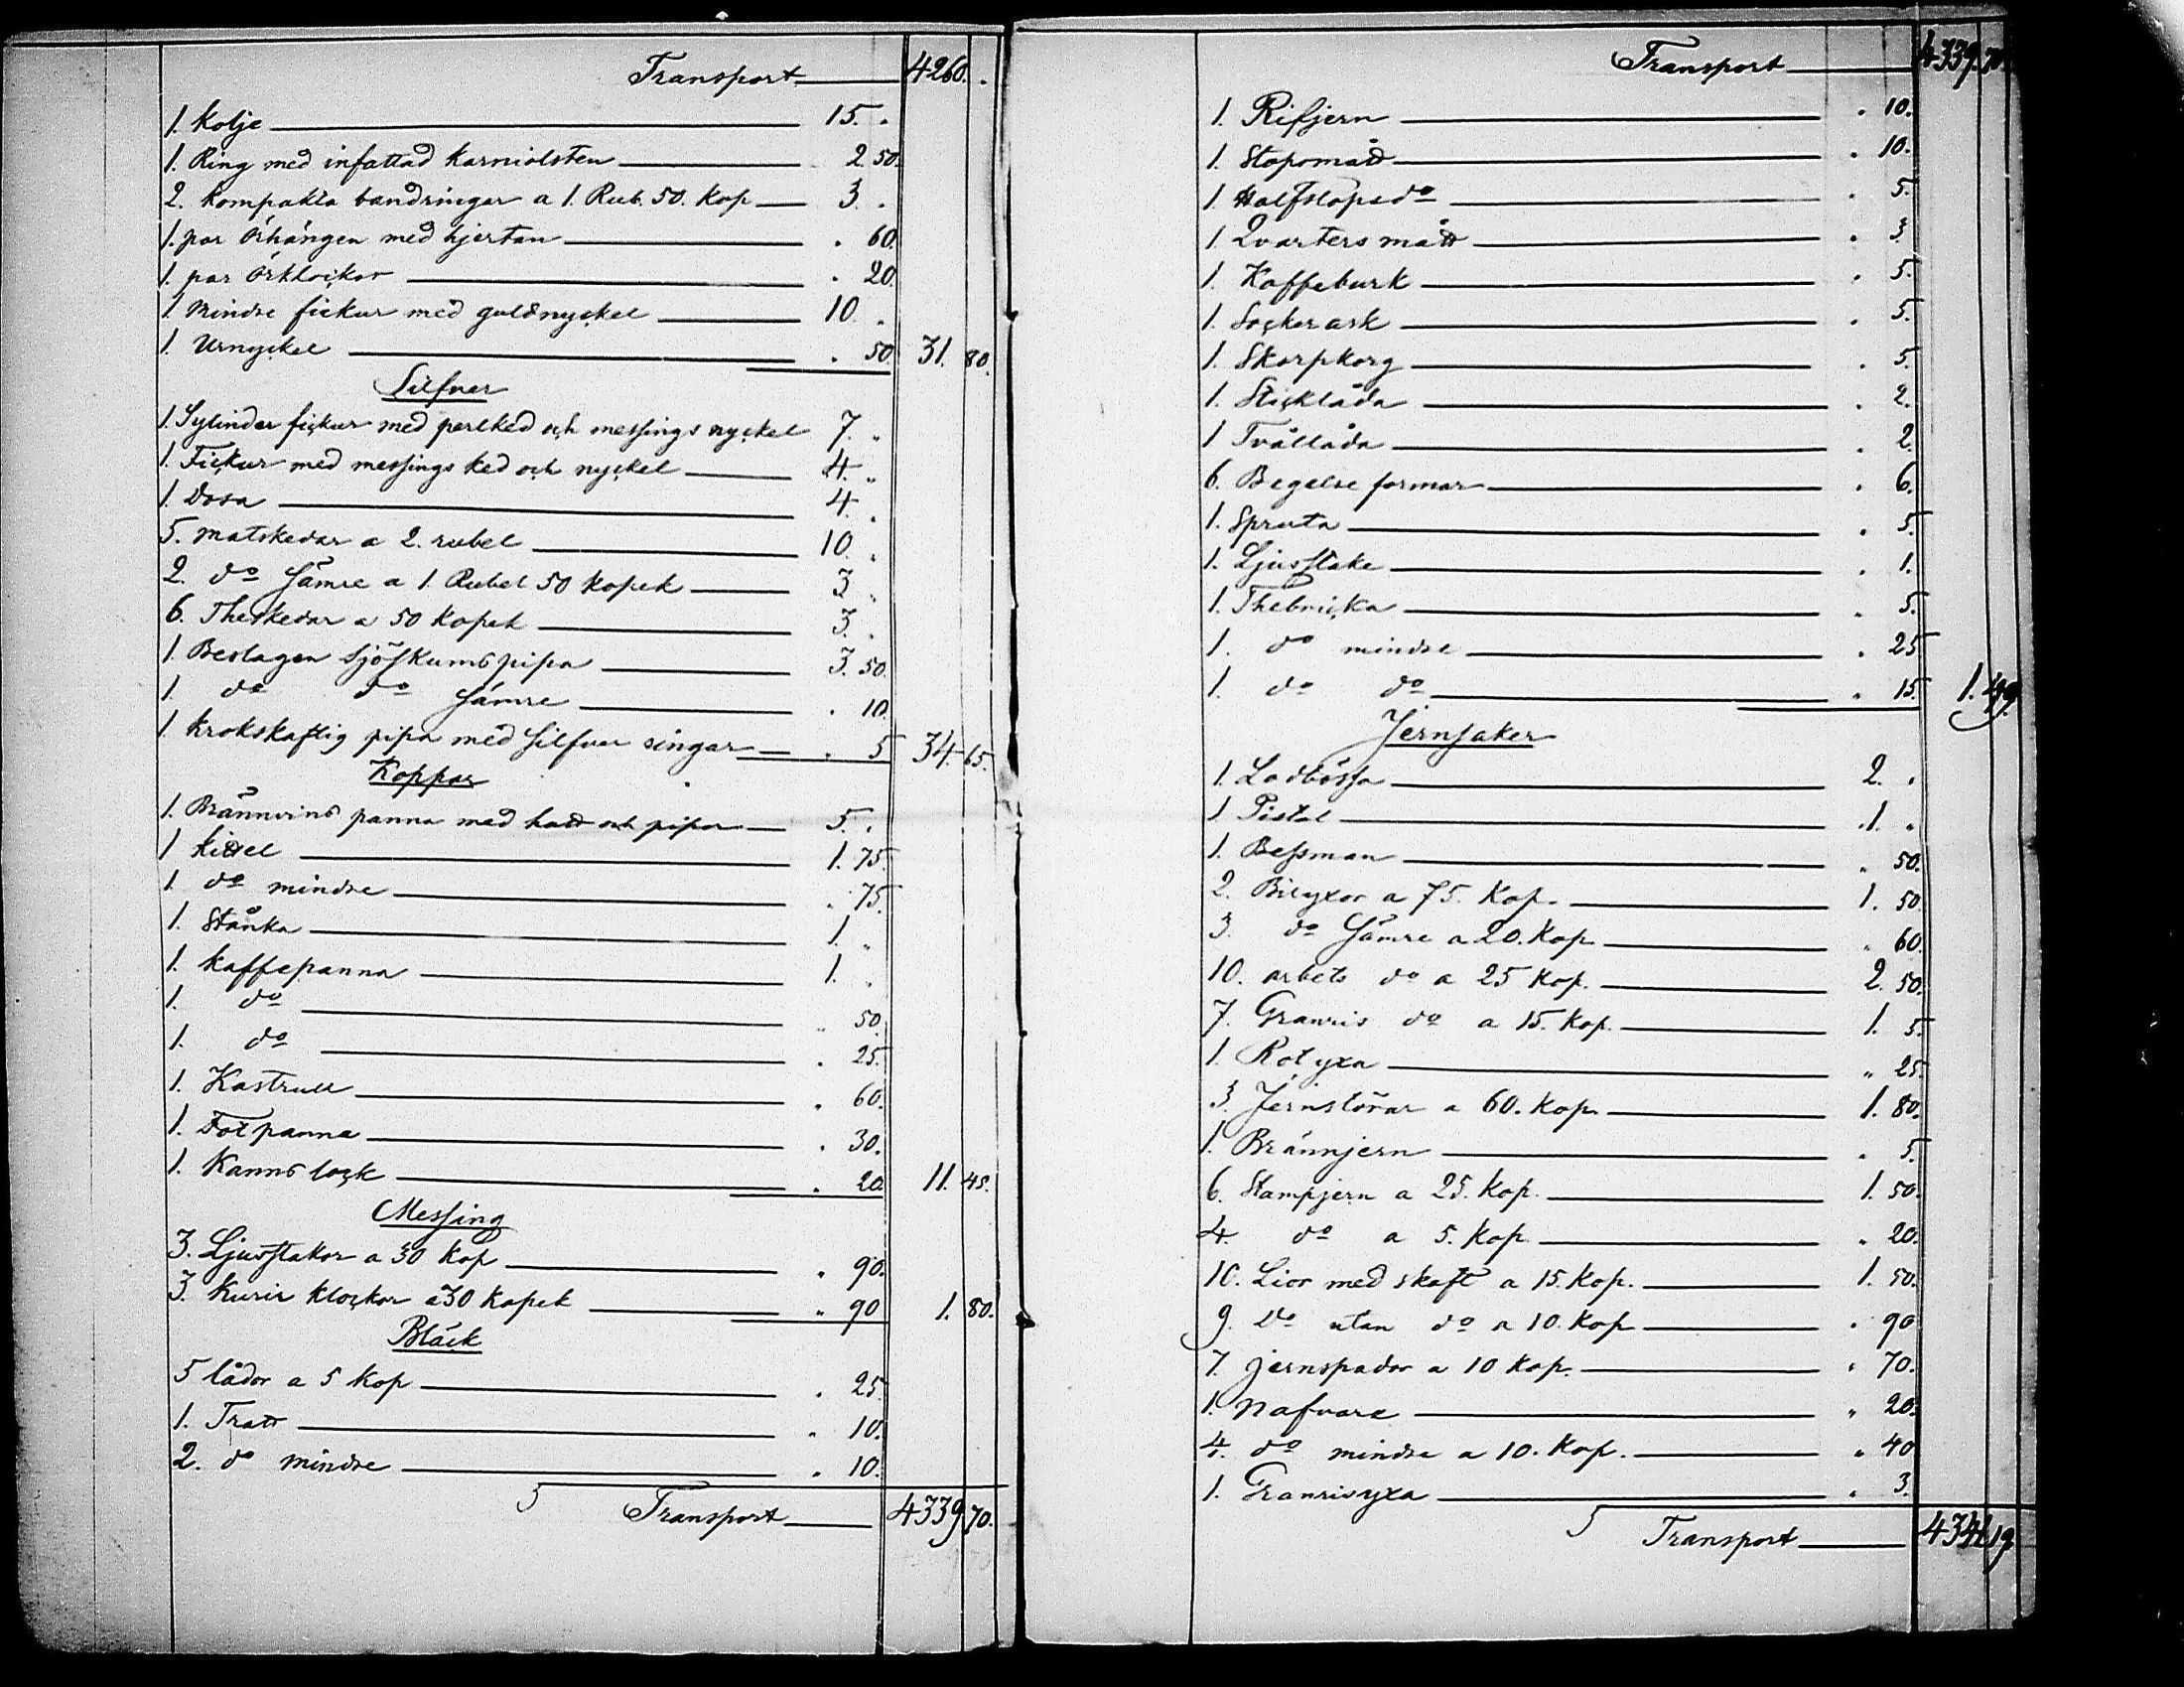 Transport 4260. .
1. Kolje 15. .
1. Ring med infattad karniolsten 2 50.
2. kompakta bandringar a 1. Rub. 50. Kop 3. .
1. par Örhängen med hjertan . 60.
1. par örklockor . 20.
1 mindre fickur med guldnyckel 10. .
1 Urnyckel . 50. 31. 80.
Silfver
1. Sylinder fickur med perlked och messings nyckel 7. "
1. Fickur med messings ked och nyckel 4. "
1. Dosa 4. .
5. matskedar a 2. rubel 10. .
2. do sämre a 1. Rubel 50 kopek 3 "
6. Theskedar a 50 Kopek 3. .
1. Beslagen sjöskumspipa 3. 50.
1. do do sämre . 10.
1 krokskaftig pipa med silfver ringar . 5 34. 65.
Koppar
1. Brännvins panna med hatt och pipor 5. .
1 kittel 1. 75.
1. do mindre . 75.
1. Stånka 1. "
1. kaffepanna 1. .
1. do " 50.
1. do . 25.
1. Kastrull . 60.
1. Fotpanna . 30.
1. Kanns lock . 20. 11. 45.
Messing
3. Ljusstakar a 30 kop . 90.
3. Kurir klockor a 30 kopek " 90 1. 80.
Bläck
5 lådor a 5 Kop . 25.
1. Tratt . 10.
2. do mindre . 10.
Transport 4339 70.
Transport 4339. 70.
1. Rifjern . 10.
1. Stopsmått . 10.
1. Halfstops do . 5.
1 Qvarters mått . 3.
1 Kaffeburk . 5.
1. Sockerask . 5.
1. Skorpkorg . 5
1. Sticklåda . 2.
1 Tvållåda . 2.
6. Begelse formar . 6.
1. Spruta . 5.
1. Ljusstake . 1.
1. Thebricka . 5.
1. do mindre . 25
1. do do " 15. 1. 49.
Jernsaker
1. Lodbössa 2. .
1 Pistol .1. "
1. Bessman " 50.
2. Bilyxor a 75. Kop. 1. 50.
3. do sämre a 20. Kop " 60.
10. arbets do a 25 Kop. 2. 50.
7. Granris do a 15. Kop. 1. 5.
1. Rotyxa " 25.
3. Jernstörar a 60. Kop. 1. 80.
1. Brännjern . 5.
6. Stampjern a 25. Kop. 1. 50.
4. do a 5. Kop. " 20.
10. Lior med skaft a 15. Kop. 1. 50.
9. do utan do a 10. Kop . 90
7. jernspador a 10 Kop. . 70.
1. Nafvare " 20.
4. do mindre a 10. Kop. " 40
1. Granrisyxa . 3.
Transport 4341 19